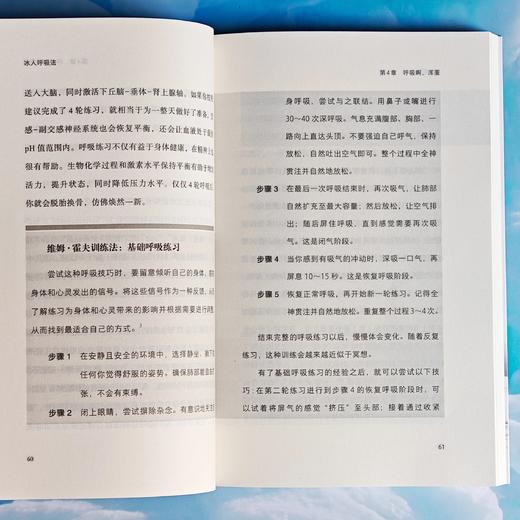 冰人呼吸法
送入大脑，同时激活下丘脑-垂体-肾上腺轴。如果你按照
建议完成了 4 轮练习，就相当于为一整天做好了准备，交
感-副交感神经系统也会恢复平衡，还会让血液处于最
pH 值范围内。呼吸练习不仅有益于身体健康，在精神上也
很有帮助。生物化学过程和激素水平保持平衡有助于增
活力，提升状态，同时降低压力水平。仅仅 4 轮呼吸后
你就会脱胎换骨，仿佛焕然一新。
维姆·霍夫训练法：基础呼吸练习
尝试这种呼吸技巧时，要留意倾听自己的身体，
身体和心灵发出的信号。将这些信号作为一种反馈，从
了解练习为身体和心灵带来的影响并根据需要进行调
从而找到最适合自己的方式。
步骤 1 在安静且安全的环境中，选择静坐、躺下
任何你觉得舒服的姿势。确保肺部能自
张，不会有束缚。
步骤 2 闭上眼睛，尝试摒除杂念。有意识地关注
60
第 4 章 呼吸啊，浑蛋
身呼吸，尝试与之联结。用鼻子或嘴进行
30~40 次深呼吸。气息充满腹部、胸部，
一路向上直达头顶。不要强迫自己呼气，保持
放松，自然吐出空气即可。整个过程中全神
贯注并自然地放松。
步骤 3 在最后一次呼吸结束时，再次吸气，让肺部
自然扩充至最大容量；然后放松，让空气排
出；随后屏住呼吸，直到感觉需要再次吸
气。这是闭气阶段。
步骤 4 当你感到有吸气的冲动时，深吸一口气，再
屏息 10~15 秒。这是恢复呼吸阶段。
步骤 5 恢复正常呼吸，再开始新一轮练习。记得全
神贯注并自然地放松。重复整个过程 3~4 次。
结束完整的呼吸练习以后，慢慢体会变化。随着反复
练习，这种训练会越来越近似于冥想。
有了基础呼吸练习的经验之后，就可以尝试以下技
巧：在第二轮练习进行到步骤 4 的恢复呼吸阶段时，可
以试着将屏气的感觉“挤压”至头部；接着通过收紧
61